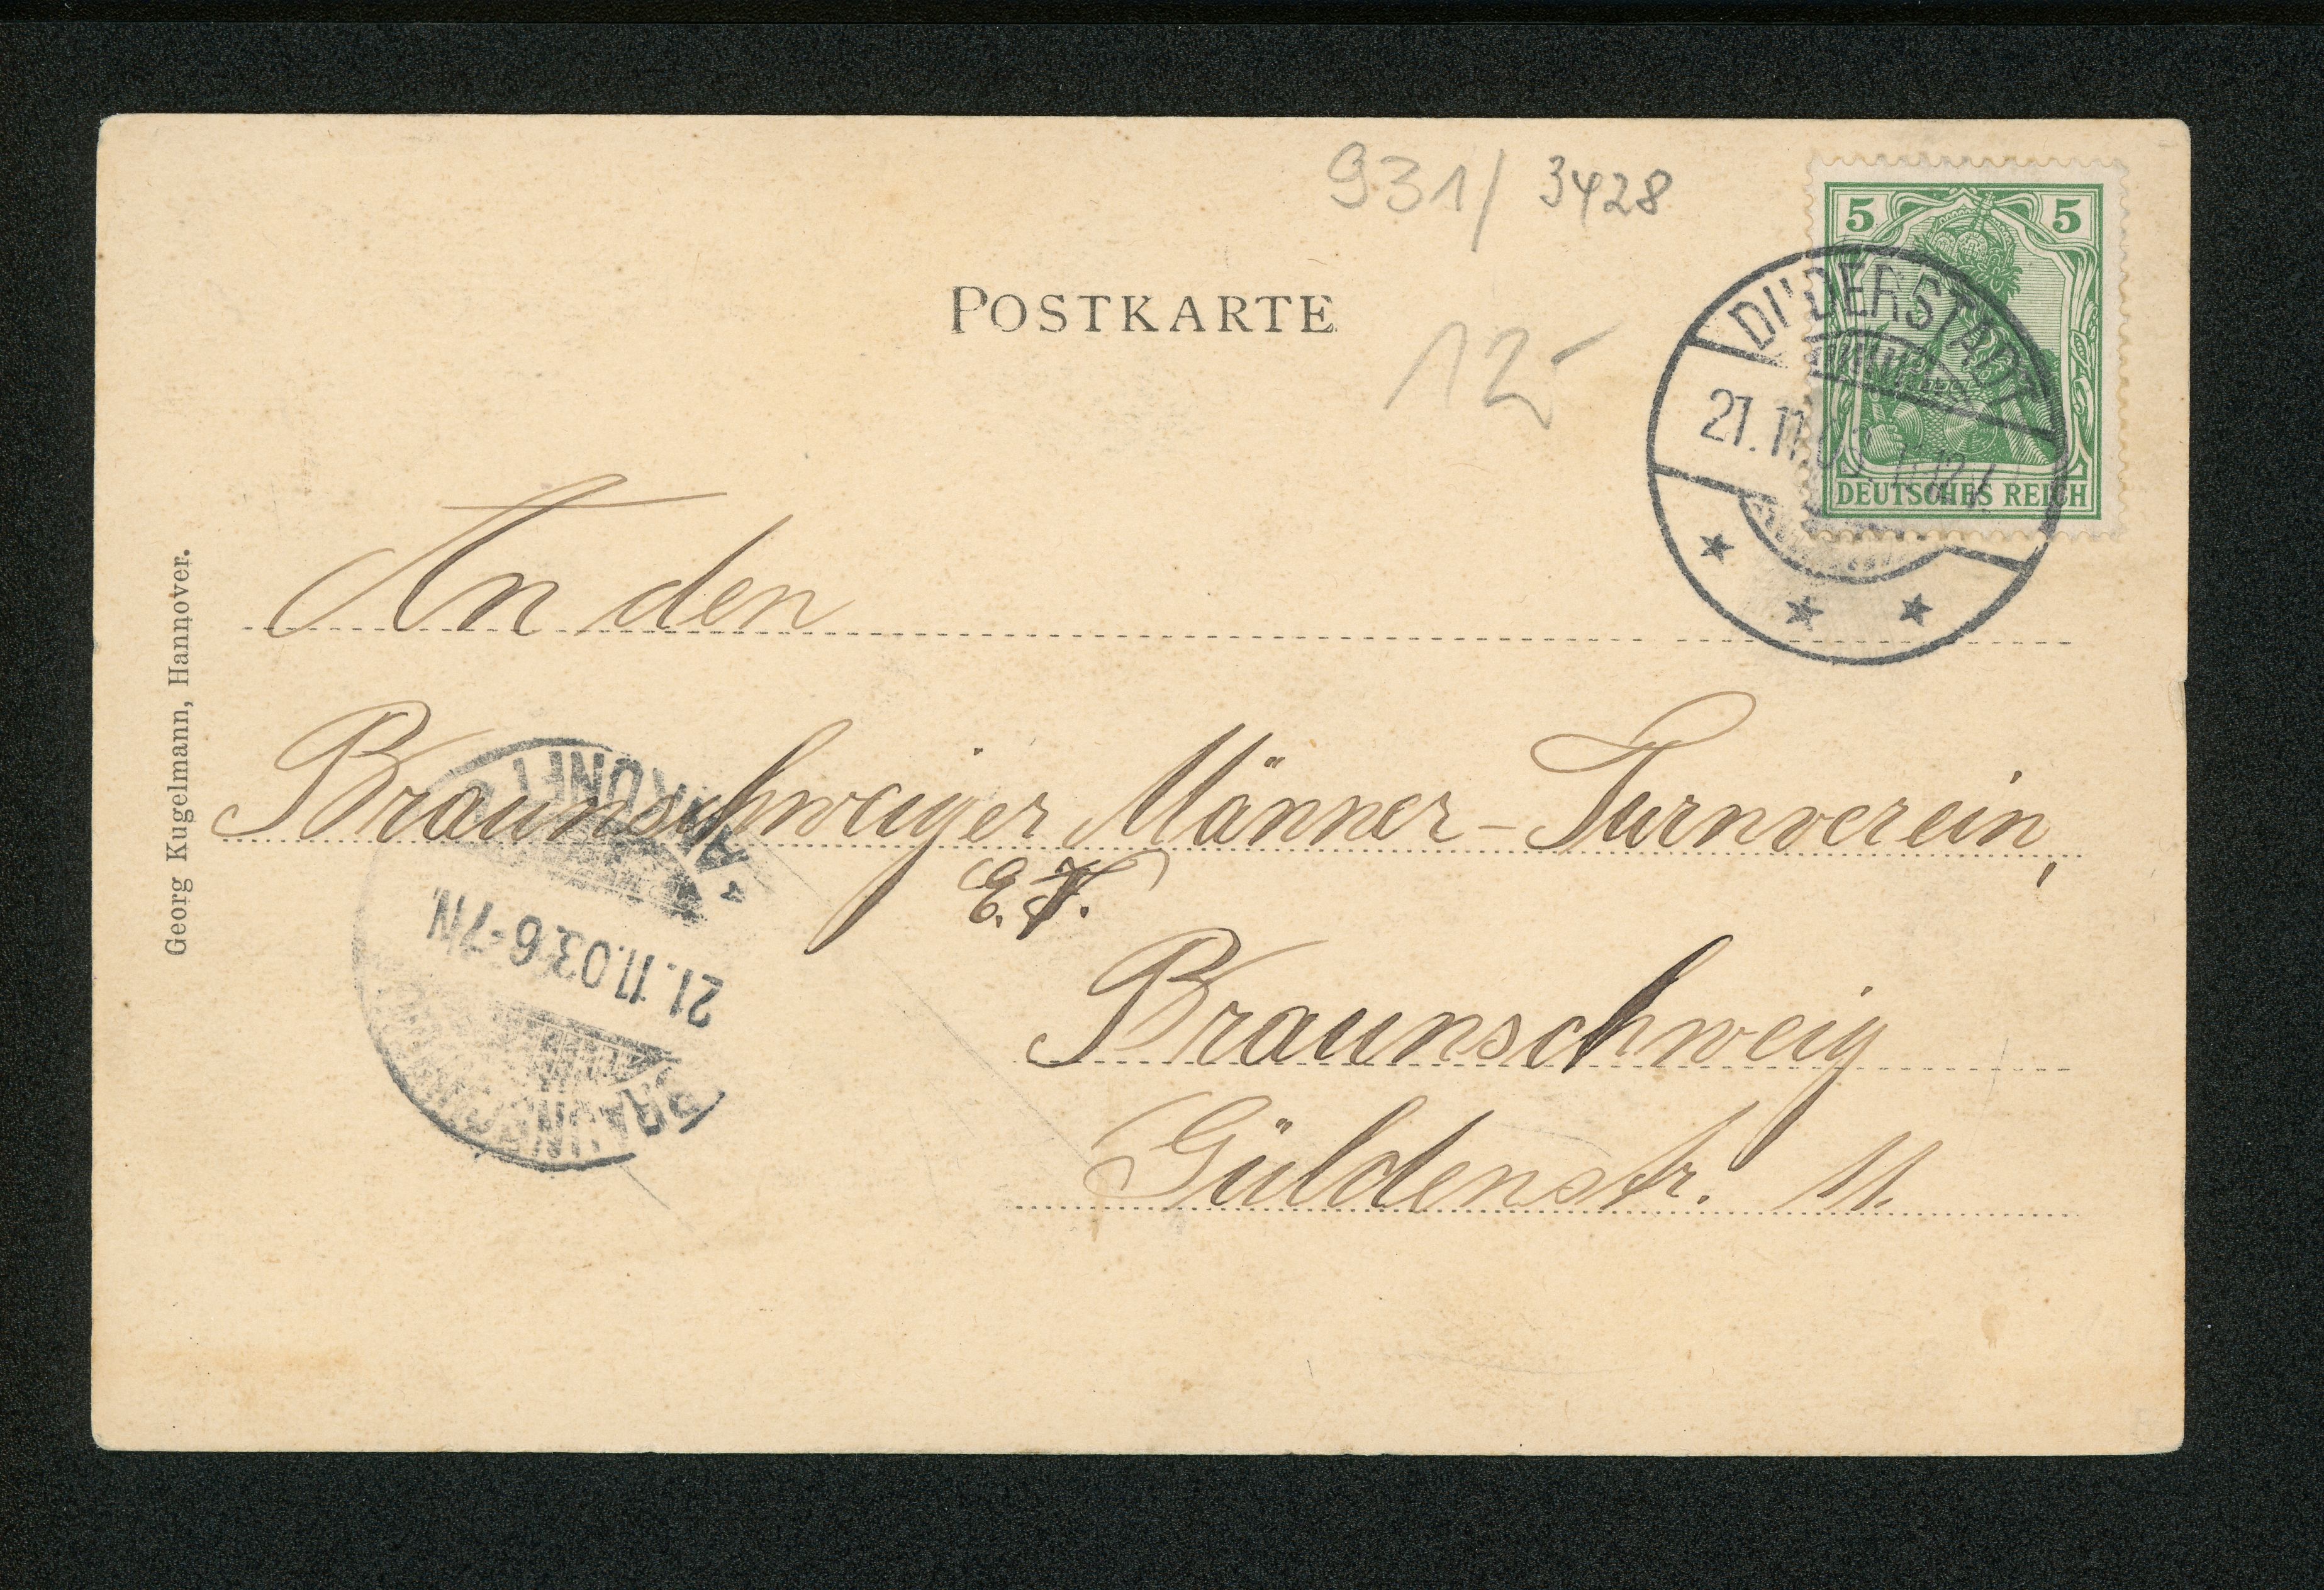 931/ 3428
POSTKARTE
12-
5 5
DEUTSCHES REICH
DUDERSTADT
21.11.03. 11-12 V
An den
Braunschweiger Männer-Turnverein,
E.V.
Braunschweig
Güldenstr. 11.
Georg Kugelmann, Hannover.
BRAUNSCHWEIG
21.11.03. 6-7N.
* ANKUNFT